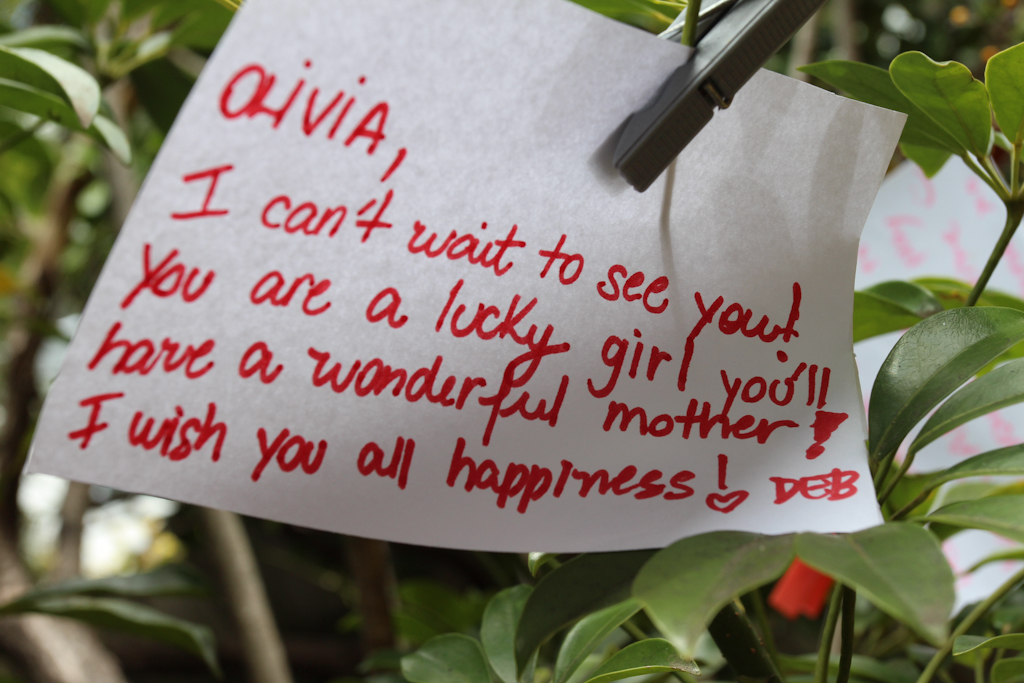 OLiViA,
I can't wait to see you!
You are a lucky girl you'll
have a wonderful mother!
I wish you all happiness! DEB